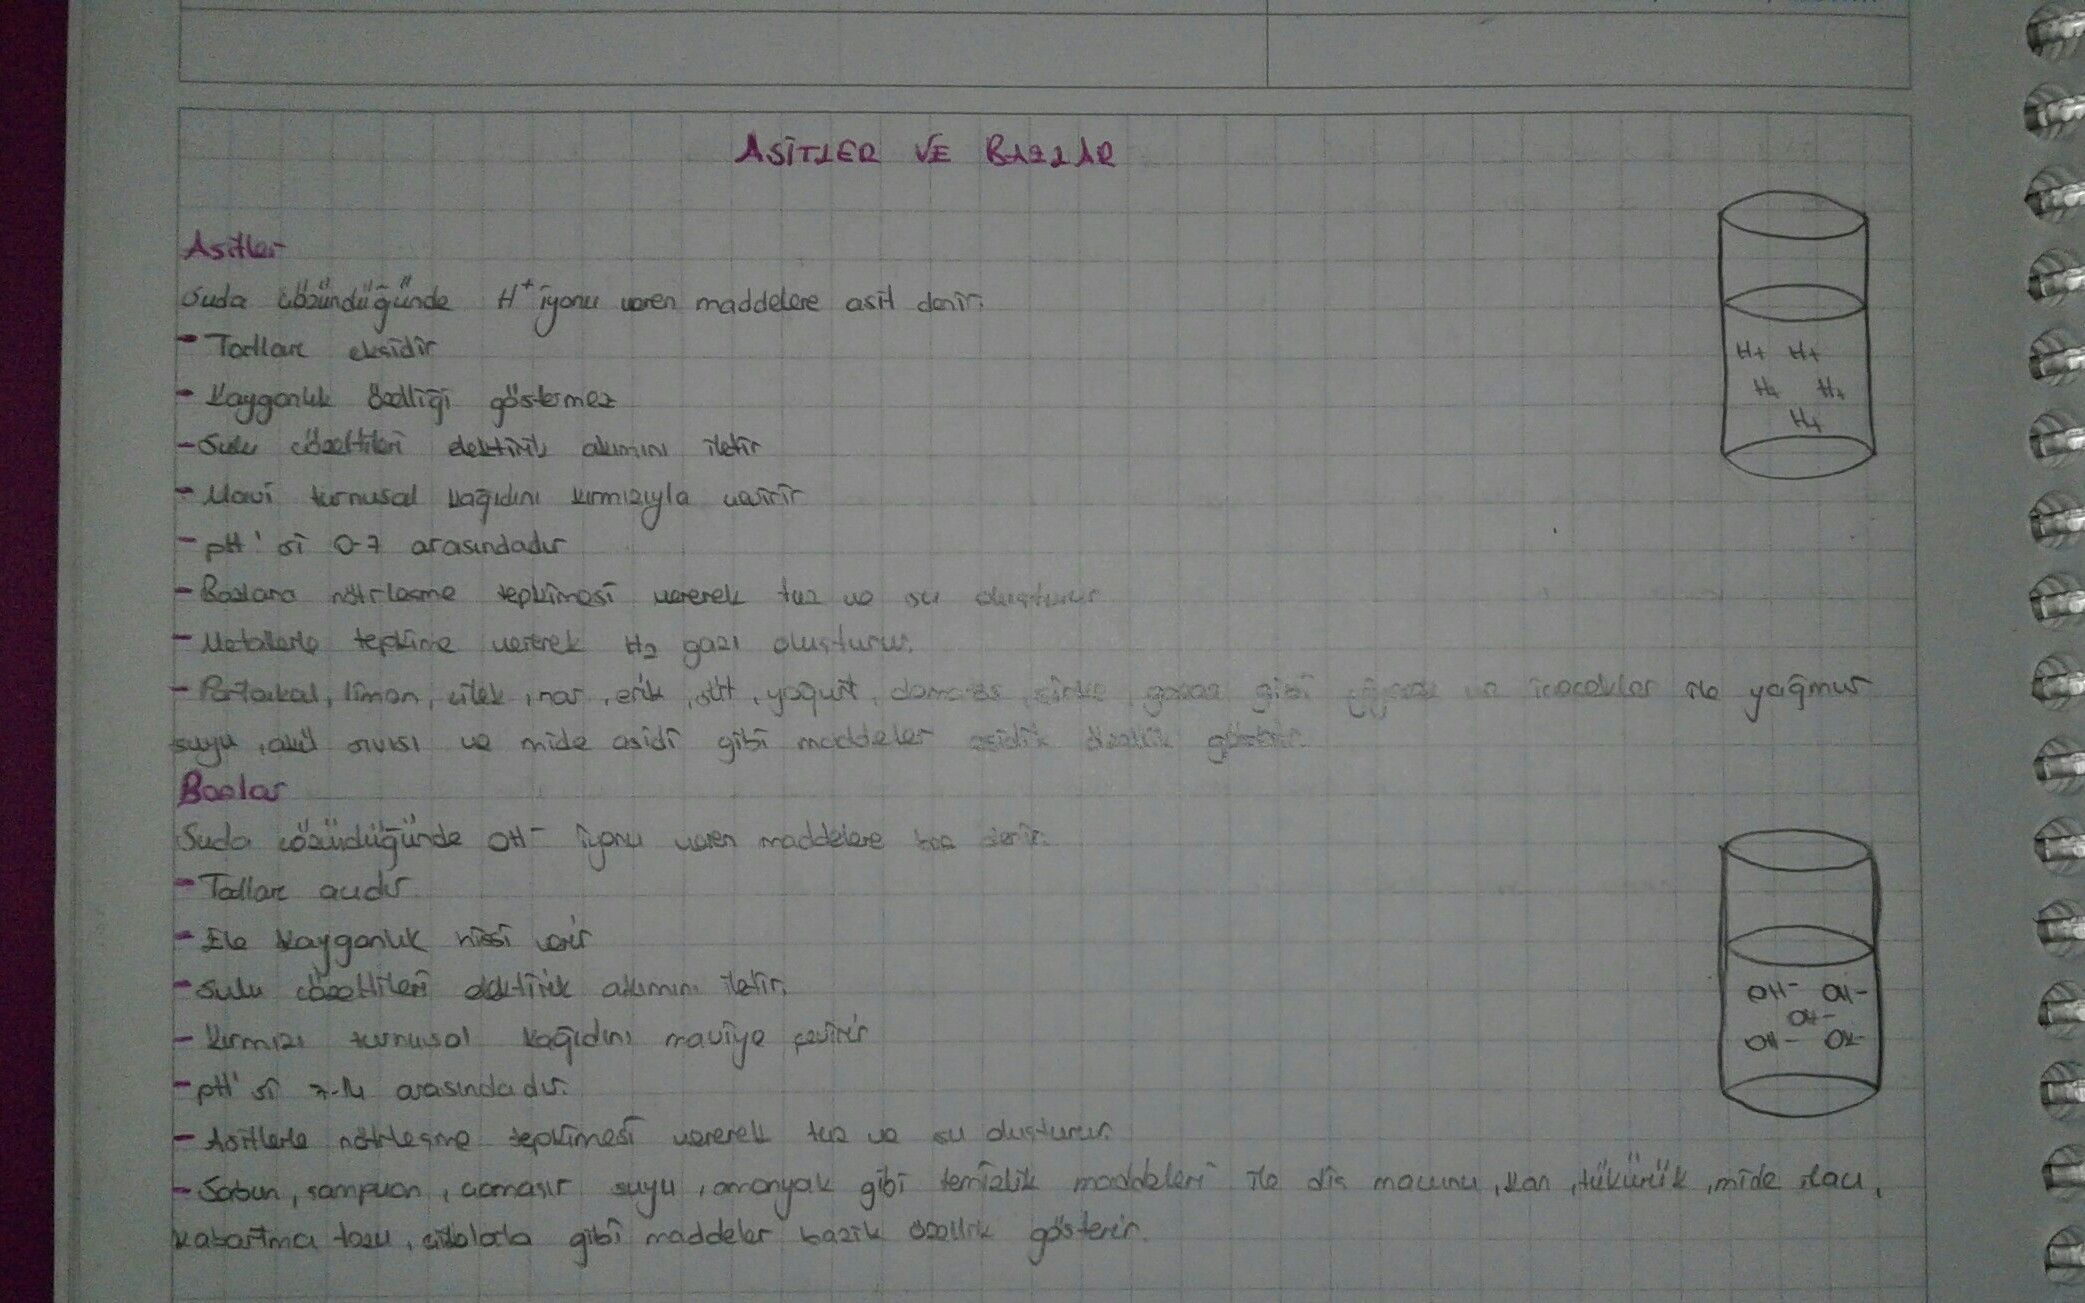 ASİTLER VE BAZLAR
Asitler
Suda çözündüğünde H+ iyonu veren maddelere asit denir.
- Tadları ekşidir
- Kayganlık özelliği göstermez
- Sulu çözeltileri elektirik akımını iletir
- Mavi turnusal kağıdını kırmızıyla çevirir
- pH' si 0-7 arasındadır
- Bazlarla nötrleşme tepkimesi vererek tuz ve su oluşturur
- Metallerle tepkime vererek H2 gazı oluşturur.
- Portakal, limon, çilek, nar, erik, süt, yoğurt, domates, sirke, gazoz gibi yiyecek ve içecekler ile yağmur
suyu, akü sıvısı ve mide asidi gibi maddeler asidik özellik gösterir.
H+ H+
H+ H+
H+
Bazlar
Suda çözündüğünde OH- iyonu veren maddelere baz denir.
- Tadları acıdır.
- Ele kayganlık hissi verir
- Sulu çözeltileri elektirik akımını iletir.
- Kırmızı turnusol kağıdını maviye çevirir
- pH' si 7-14 arasındadır.
- Asitlerle nötrleşme tepkimesi vererek tuz ve su oluşturur.
- Sabun, şampuan, çamaşır suyu, amonyak gibi temizlik maddeleri ile diş macunu, kan, tükürük, mide ilacı,
kabartma tozu, çikolata gibi maddeler bazik özellik gösterir.
OH- OH-
OH-
OH- OH-